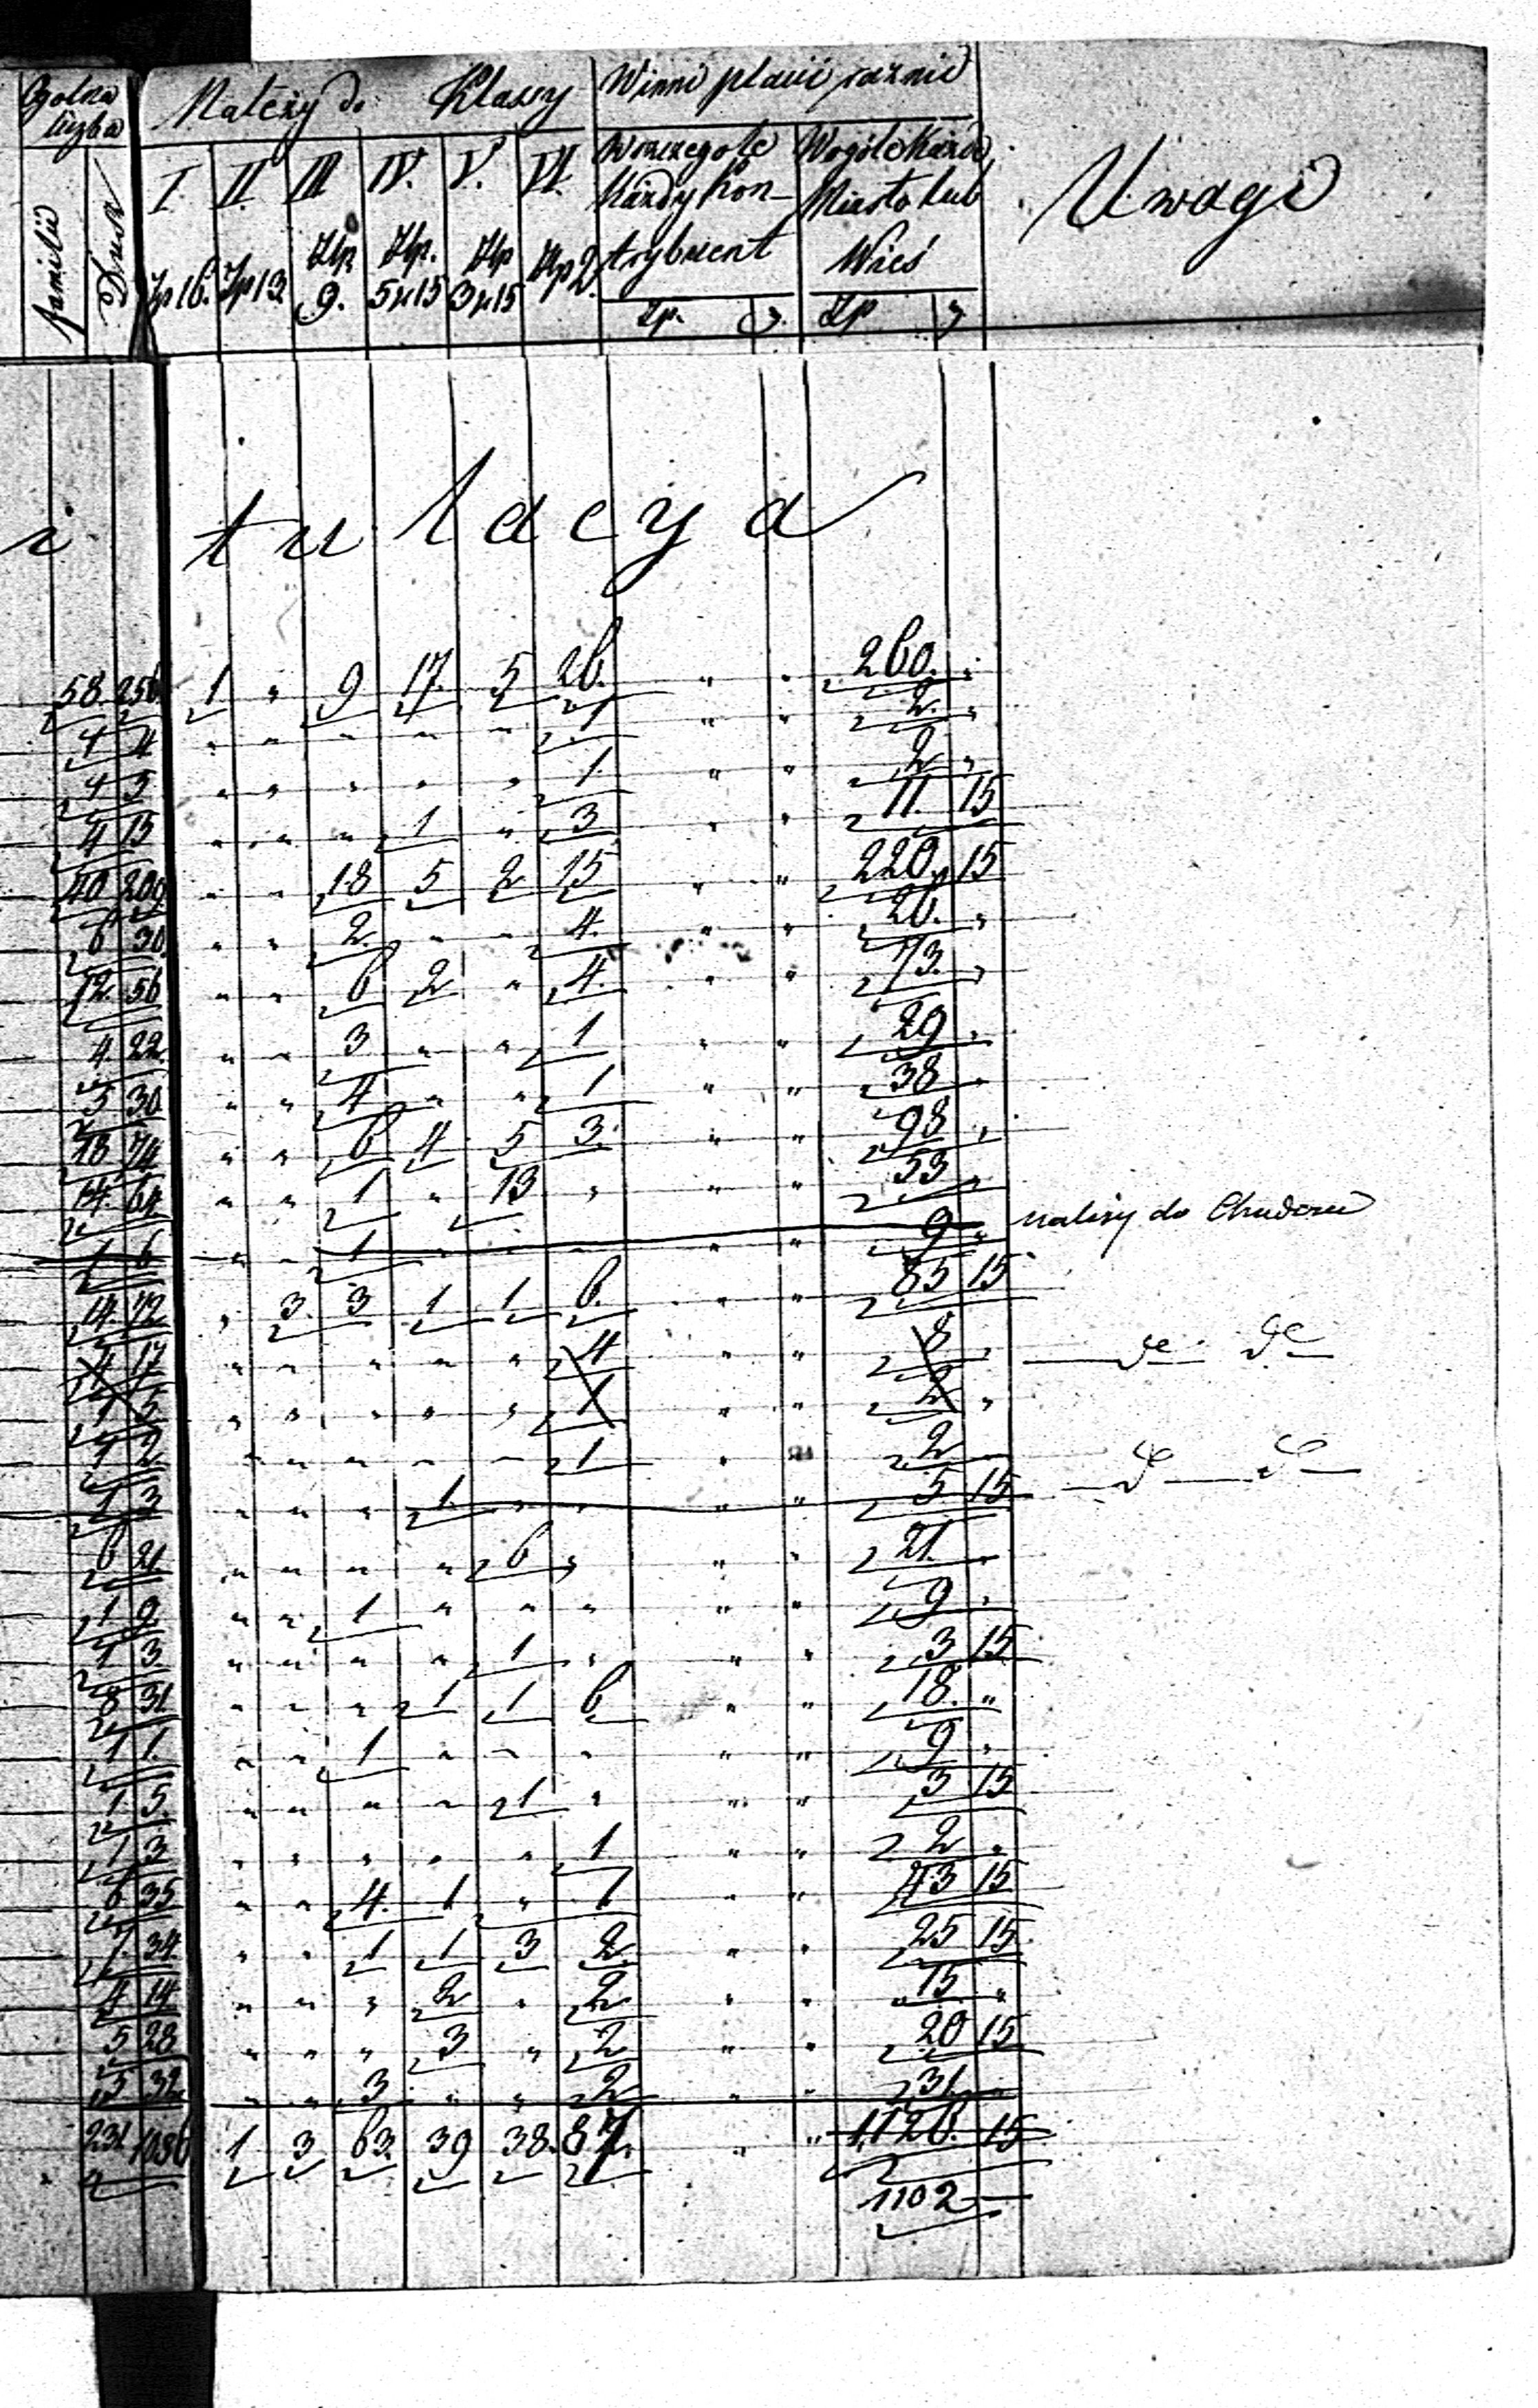 Ogolna liczba | Należy do Klassy | Winni płacić rocznie | Uwagi
familii | Dusz | I. | II. | III | IV. | V. | VI. | W szczegole Każdy Kontrybuent | W ogóle Każde Miasto lub Wieś
Zp 16. | Zp 13 | Złp 9. | Złp. 5 gr 15 | Złp 3 gr 15 | Złp 2. | Zp. | g. | Zp | g
i t u l a c y a
58. 256. 1 " 9 17. 5 26. " " 260. "
1 4 " " " " " 1 " " 2. "
1 5 " " " " " 1. " " 2 "
4 15 " " " 1 " 3 " " 11. 15
40 209 " " 18 5 2 15 " " 220. 15
6 30. " " 2. " " 4. " " 26. "
12. 56 " " 6 2 " 4. " " 73. "
4. 22. " " 3 " " 1 " " 29 "
5 30. " " 4 " " 1 " " 38 "
18 74 " " 6 4 5 3. " " 98 "
14. 64. " " 1 " 13 " " " 53 "
1 6 " " 1 " " " " " 9 " należy do Chudoru
14. 72 " 3. 3 1 1 6. " " 85 15
4 17 " " " " " 4 " " 8 " de de
1 5 " " " " " 1 " " 2 "
1 2 " " " " " 1 " " 2
1 3 " " " 1 " " " " 5 15 de de
6 21. " " " " 6 " " " 21. "
1 9 " " 1 " " " " " 9 "
1 3. " " " " 1 " " " 3 15
8 31. " " " 1 1 6 " " 18. "
1 1. " " 1 " " " " " 9 "
1 5. " " " " 1 " " " 3 15
1 3 " " " " " 1 " " 2 "
6 35 " " 4. 1 " 1 " " 43 15
7. 34. " " 1 1 3 2. " " 25 15
4 14 " " " 2 " 2 " " 15. "
5 28 " " " 3 " 2 " " 20 15
5 32 " " 3 " " 2 " " 31. "
231 1086 1 3 63. 39 38. 87. " " 1126. 15
1102